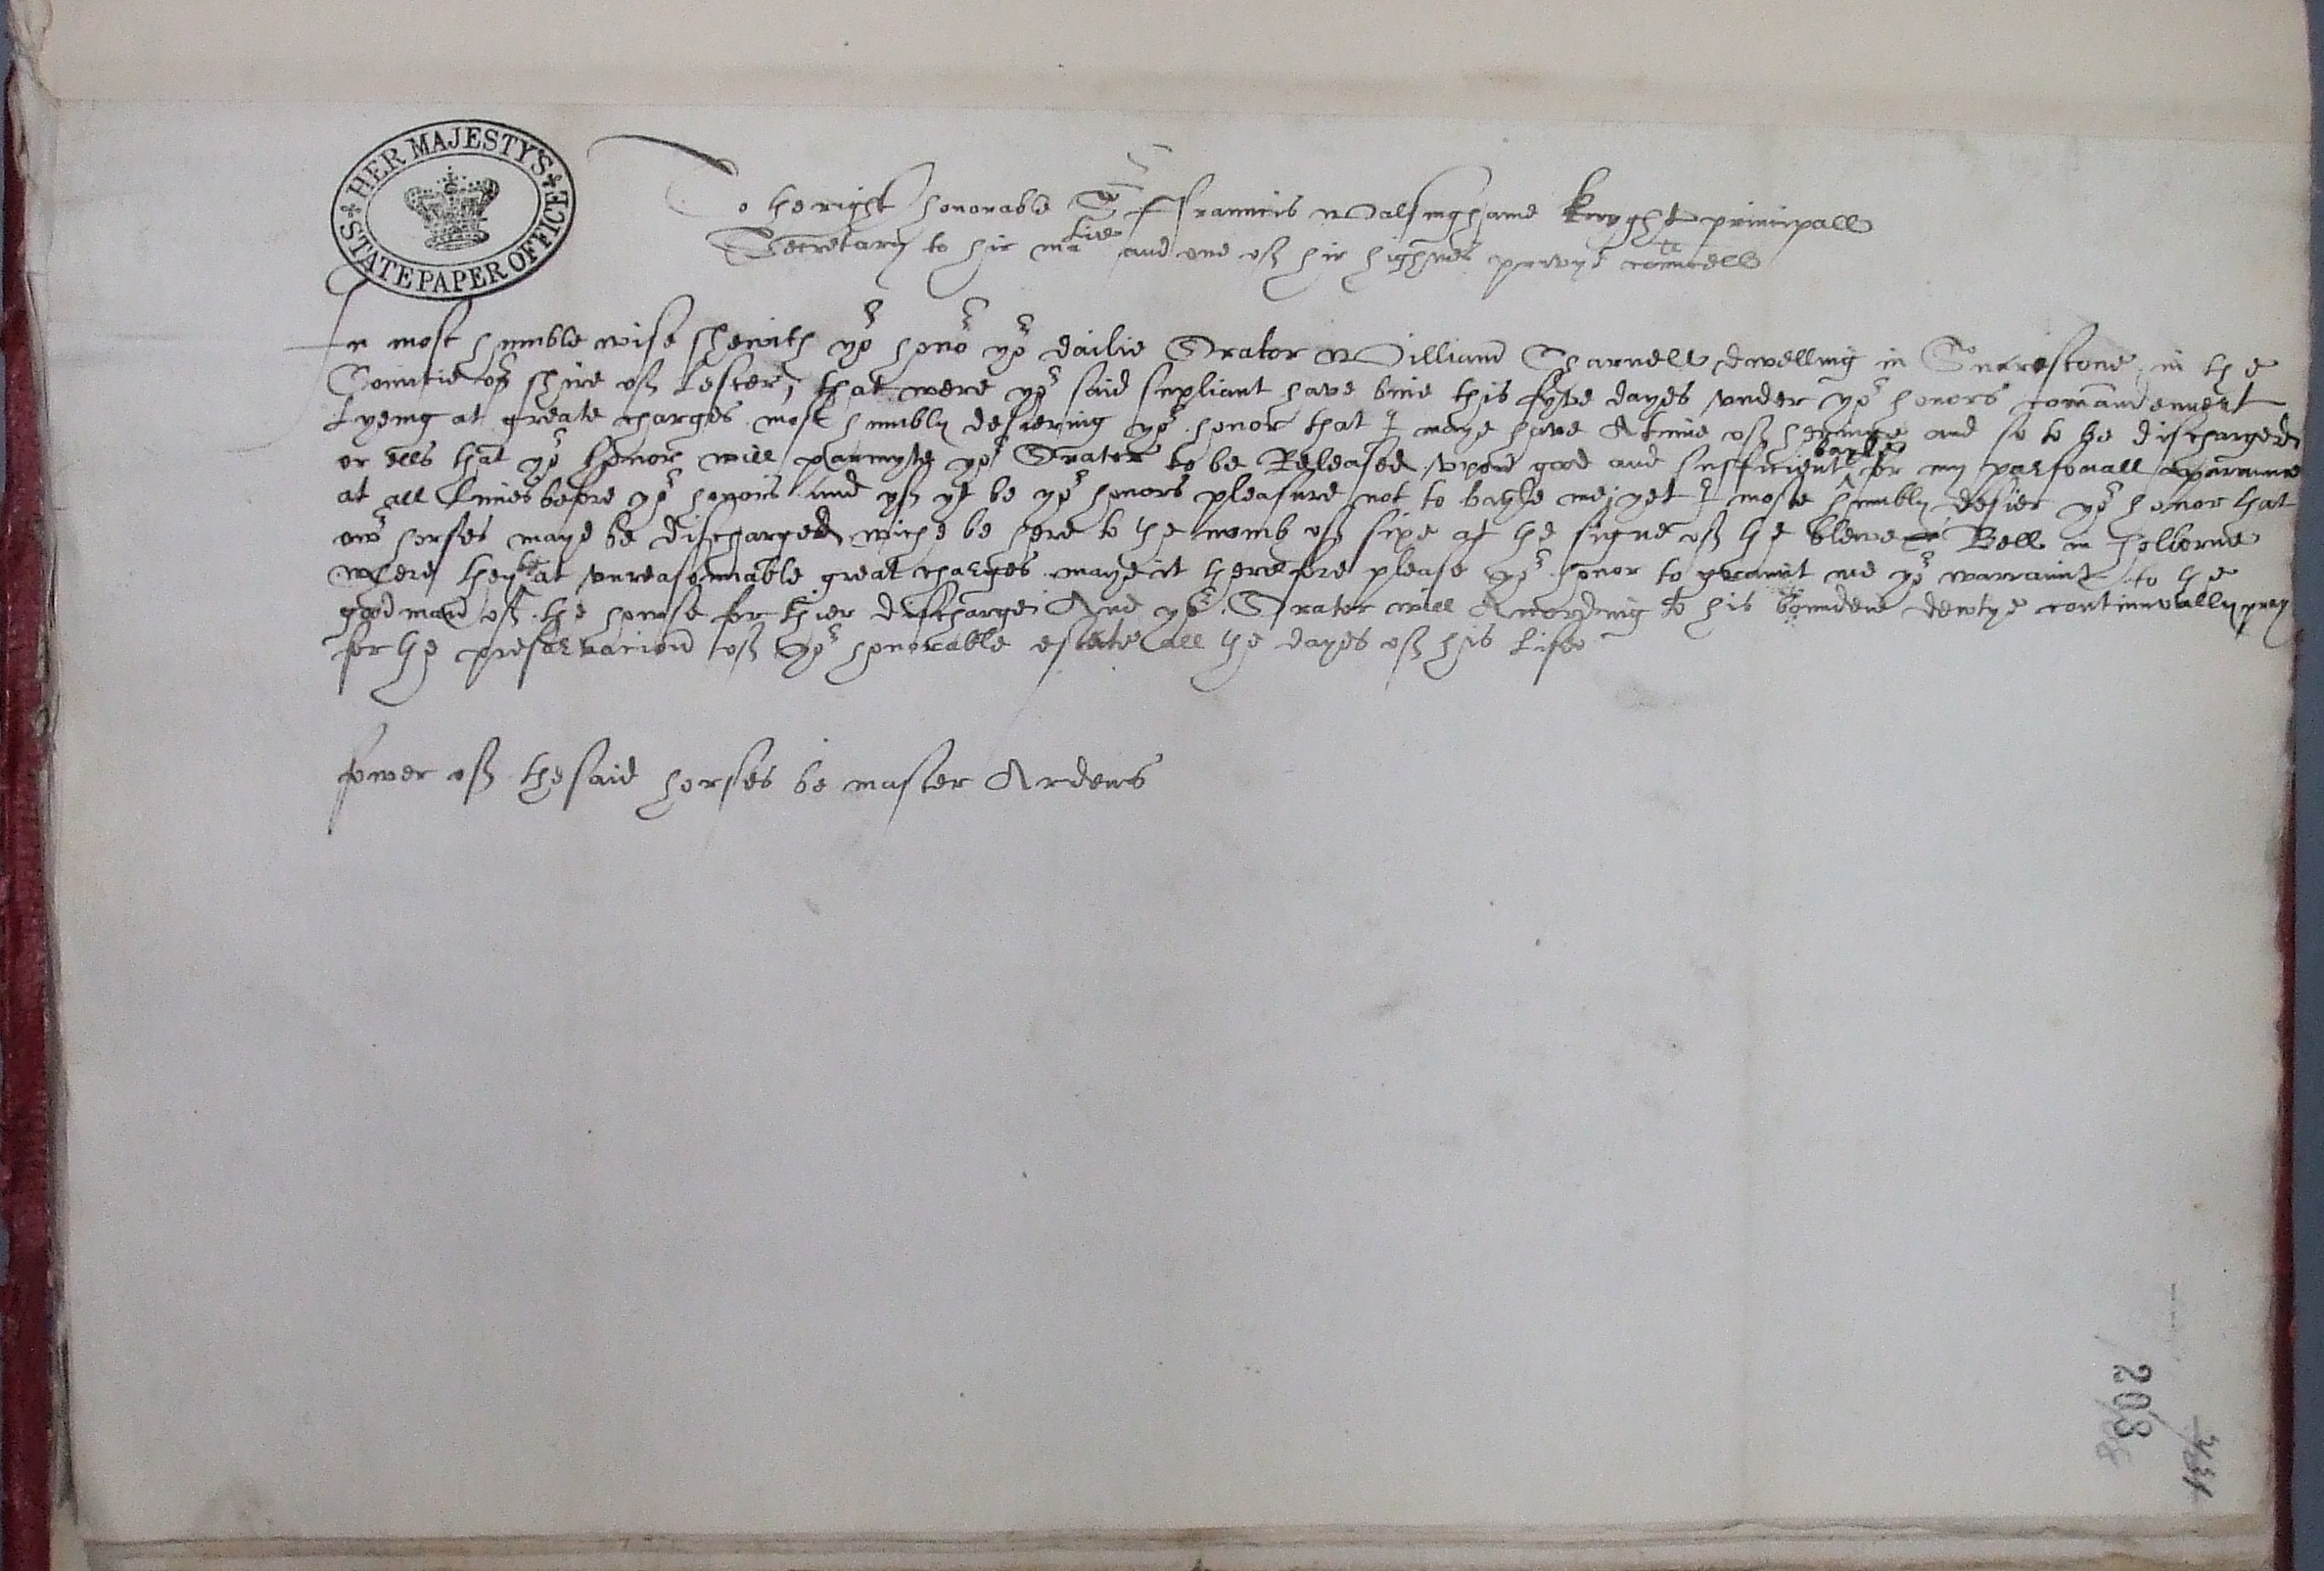 HER MAJESTY'S STATE PAPER OFFICE
To the right honorable Sr Ffranncis Walsinghame knyght principall
Secretary to hir matie and one of hir highnes pryvye counsell
In most humble wise shewith yor honor yor dailie Orator William Charnell dwelling in Snarestone in the
Countie or shire of Lester, that were yor said supliant have bine this fyve dayes vnder yor honors comandement
Lyeing at greate charges most humbly desiering yor honor that I maye have A time of hearinge and so to be discharged
or ells that yor honor will parmyte yor Orator to be Released vpon good and sufficient bayle for my parsonall aparaunce
at all times before yor honors And yf yt be yor honors pleasure not to bayle me, yet I moste humbly desier yor honor that
our horses maye be discharged wiche be here to the nomb of sixe at the signe of the blewe Bell in holborne
where they be at vnreasonnable great charges maye it therefore please yor honor to graunt me yor warraunt to the
good man of the howse for thier discharge And yor Orator will Accordng to his bounden dewtye continually pray
for the preservacion of yor honorable estate all the dayes of his Life
fower of the said horses be master Ardens
208